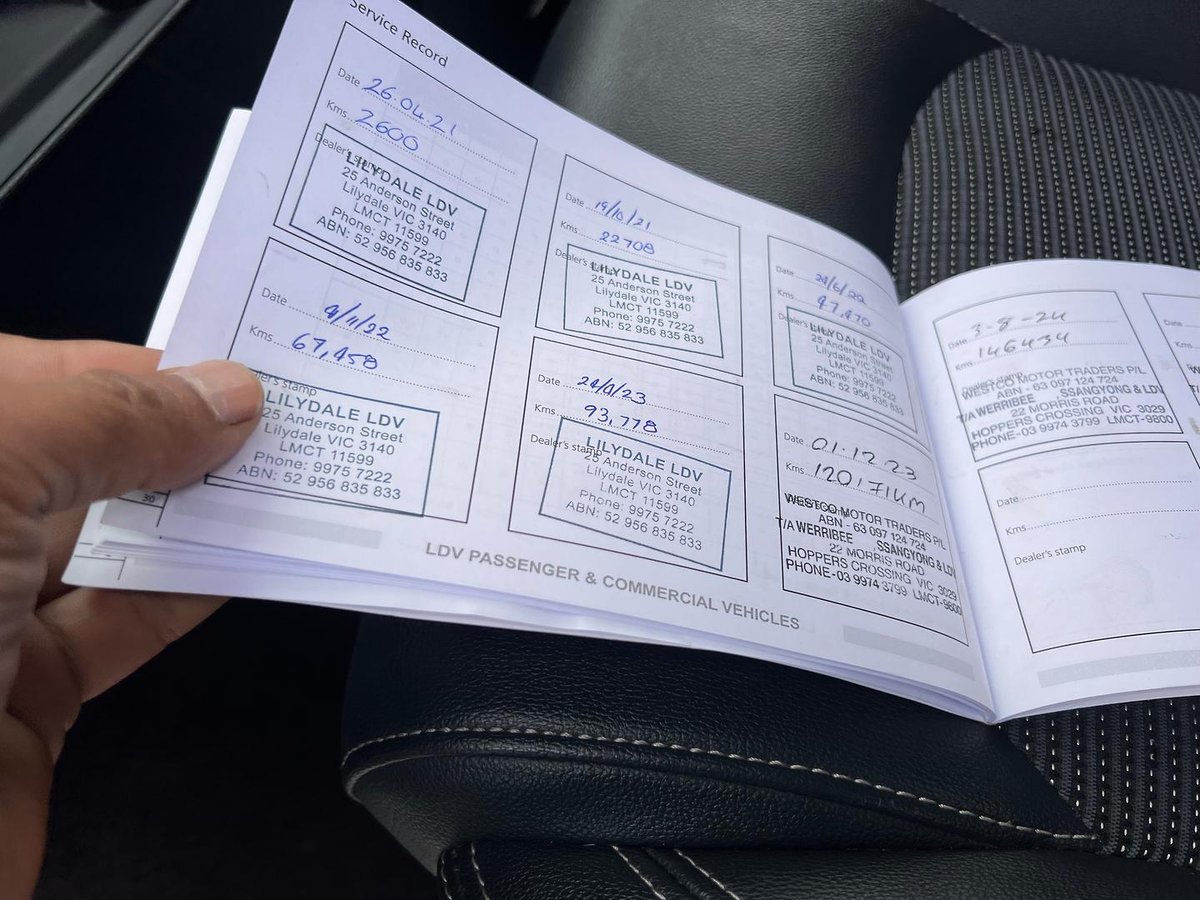 Service Record
Date 26.04.21
Kms 2600
Dealer's stamp
LILYDALE LDV
25 Anderson Street
Lilydale VIC 3140
LMCT 11599
Phone: 9975 7222
ABN: 52 956 835 833
Date 19/10/21
Kms 22708
Dealer's stamp
LILYDALE LDV
25 Anderson Street
Lilydale VIC 3140
LMCT 11599
Phone: 9975 7222
ABN: 52 956 835 833
Date
Kms 47,470
Dealer's stamp
LILYDALE LDV
25 Anderson Street
Lilydale VIC 3140
LMCT 11599
Phone: 9975 7222
ABN: 52 956 835 833
Date 9/11/22
Kms 67,458
stamp
LILYDALE LDV
25 Anderson Street
Lilydale VIC 3140
LMCT 11599
Phone: 9975 7222
ABN: 52 956 835 833
Date
Kms 93,778
Dealer's stamp
LILYDALE LDV
25 Anderson Street
Lilydale VIC 3140
LMCT 11599
Phone: 9975 7222
ABN: 52 956 835 833
Date 01.12.23
Kms 120171KM
WESTCO MOTOR TRADERS P/L
ABN - 63 097 124 724
T/A WERRIBEE SSANGYONG & LDV
22 MORRIS ROAD
HOPPERS CROSSING VIC 3029
PHONE-03 9974 3799 LMCT-9800
30
LDV PASSENGER & COMMERCIAL VEHICLES
Date 3-8-24
Kms 146434
Dealer's stamp
WESTCO MOTOR TRADERS P/L
ABN - 63 097 124 724
T/A WERRIBEE SSANGYONG & LDV
22 MORRIS ROAD
HOPPERS CROSSING VIC 3029
PHONE-03 9974 3799 LMCT-9800
Date
Kms
Dealer's stamp